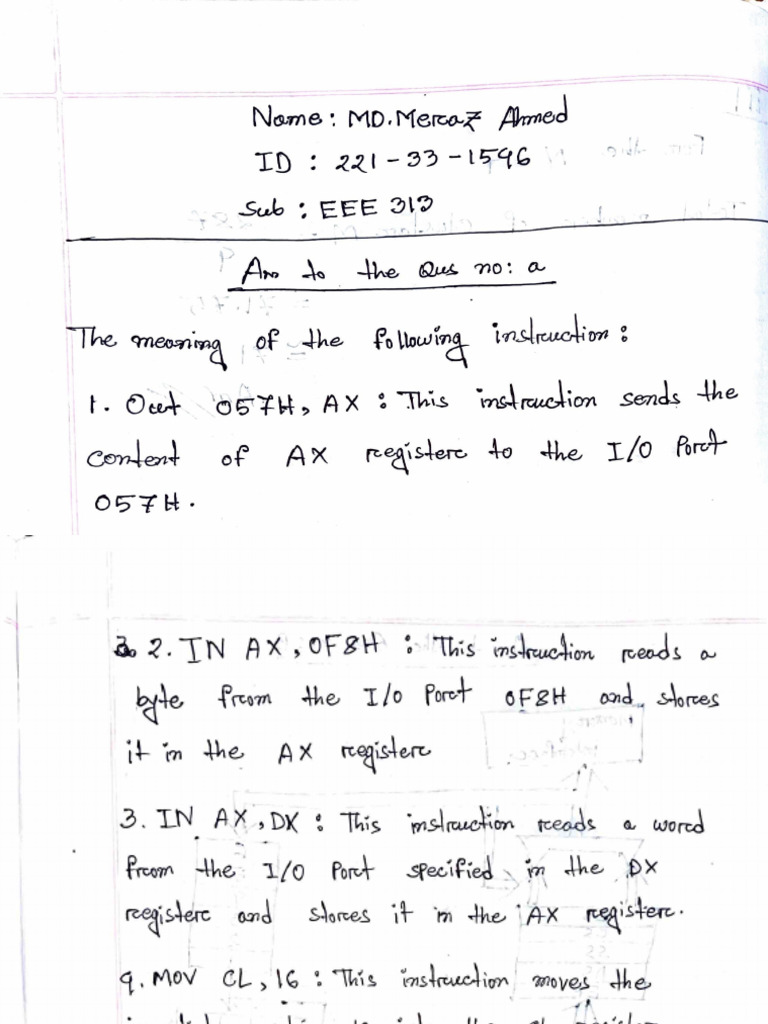 Name: MD. Meraz Ahmed
ID : 221-33-1596
Sub : EEE 313
Ans to the Qus no: a
The meaning of the following instruction :
1. Out 057H, AX : This instruction sends the
content of AX register to the I/O Port
057H.
2. IN AX, 0F8H : This instruction reads a
byte from the I/O Port 0F8H and stores
it in the AX register
3. IN AX, DX : This instruction reads a word
from the I/O Port specified in the DX
register and stores it in the AX register.
4. MOV CL, 16 : This instruction moves the